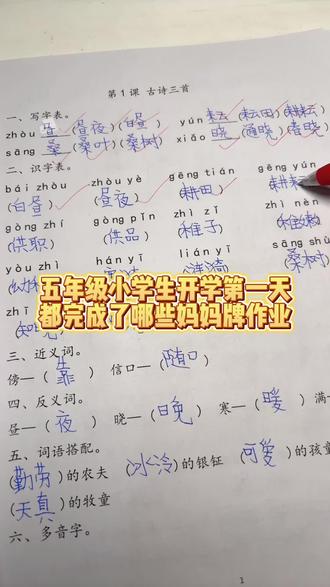 第1课 古诗三首
一、写字表。
zhòu 昼(昼夜)(白昼) yún 耘(耘田)(耕耘)
sāng 桑(桑叶)(桑树) xiǎo 晓(通晓)(春晓)
二、识字表。
bái zhòu zhòu yè gēng tián gēng yún
(白昼) (昼夜) (耕田) (耕耘
gòng zhí gòng pǐn zhì zǐ zhì nèn
(供职) (供品) (稚子) (稚嫩)
yòu zhì hán yì lián yī sāng shù
(桑树)
五年级小学生开学第一天
都完成了哪些妈妈牌作业
三、近义词。
傍—(靠) 信口—(随口)
四、反义词。
昼—(夜) 晓—(晚) 寒—(暖) 满—
五、词语搭配。
(勤劳)的农夫 (冰冷)的银钲 (可爱)的孩童
(天真)的牧童
六、多音字。
1